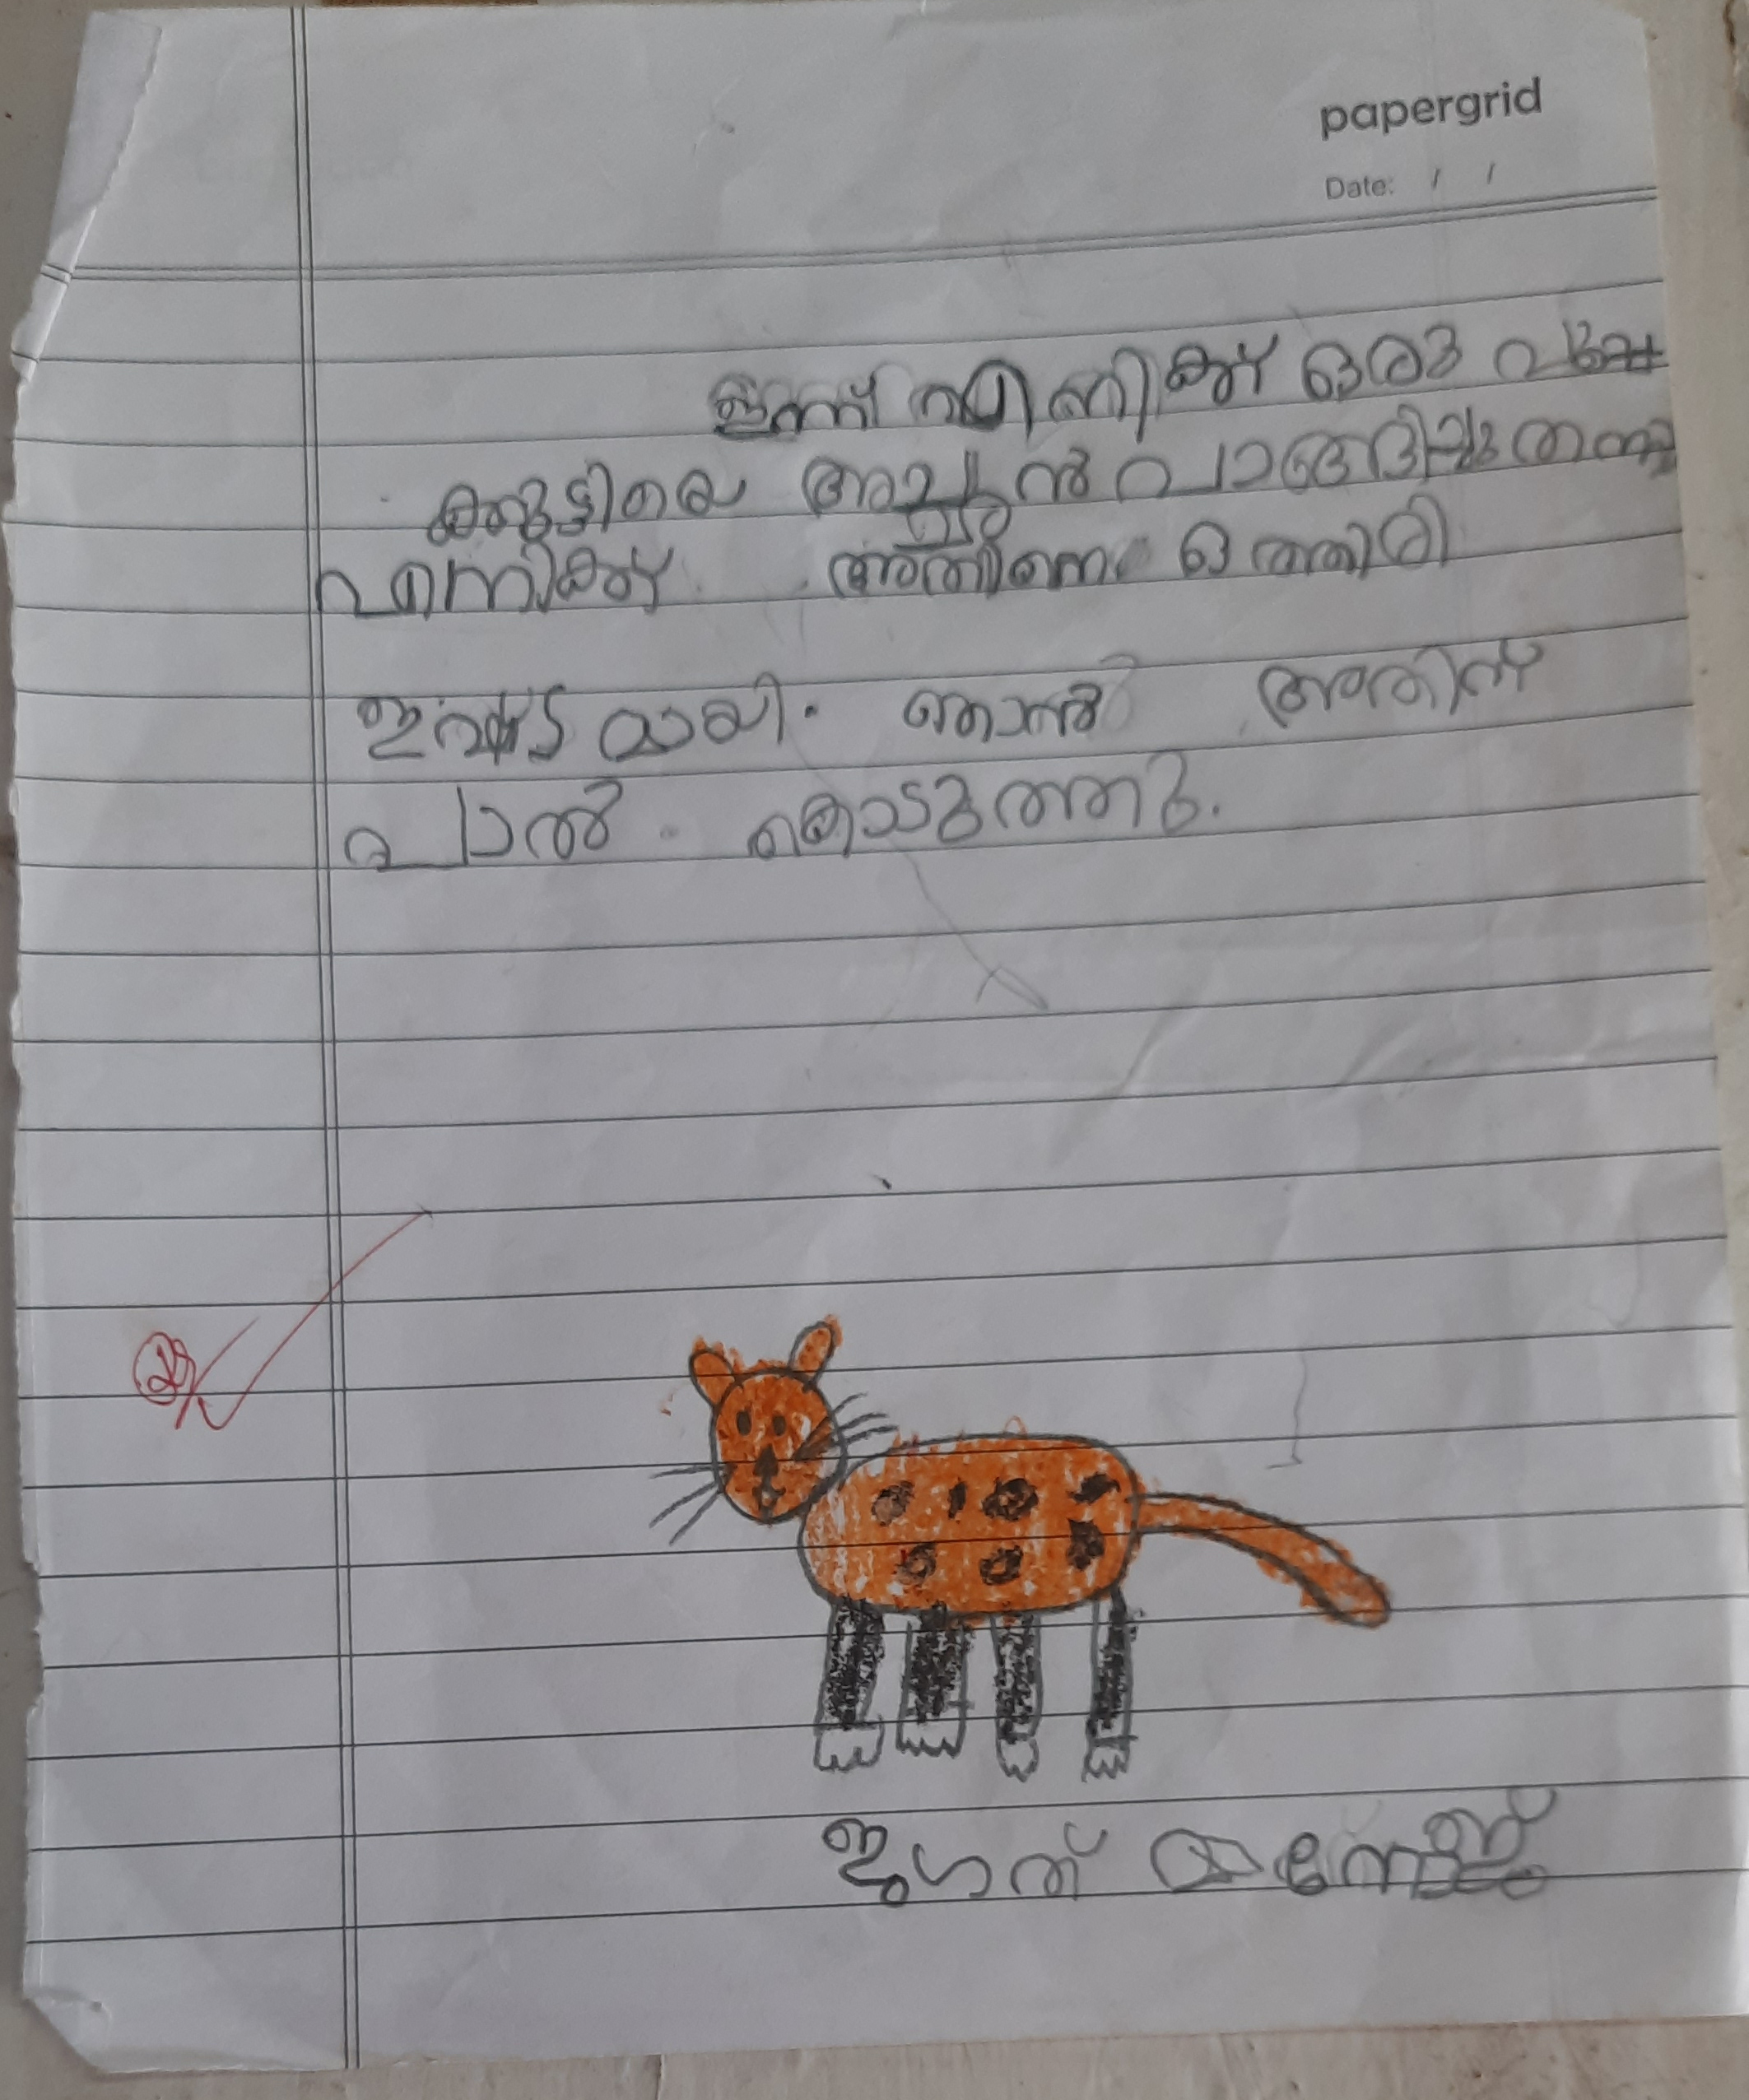 papergrid
Date: / /
ഇന്ന് എനിക്ക് ഒരു പൂച്ച
ക്കുട്ടിയെ അച്ഛൻ വാങ്ങിച്ചു തന്നു
എനിക്ക് അതിനെ ഒത്തിരി
ഇഷ്ടമായി. ഞാൻ അതിന്
പാൽ കൊടുത്തു.